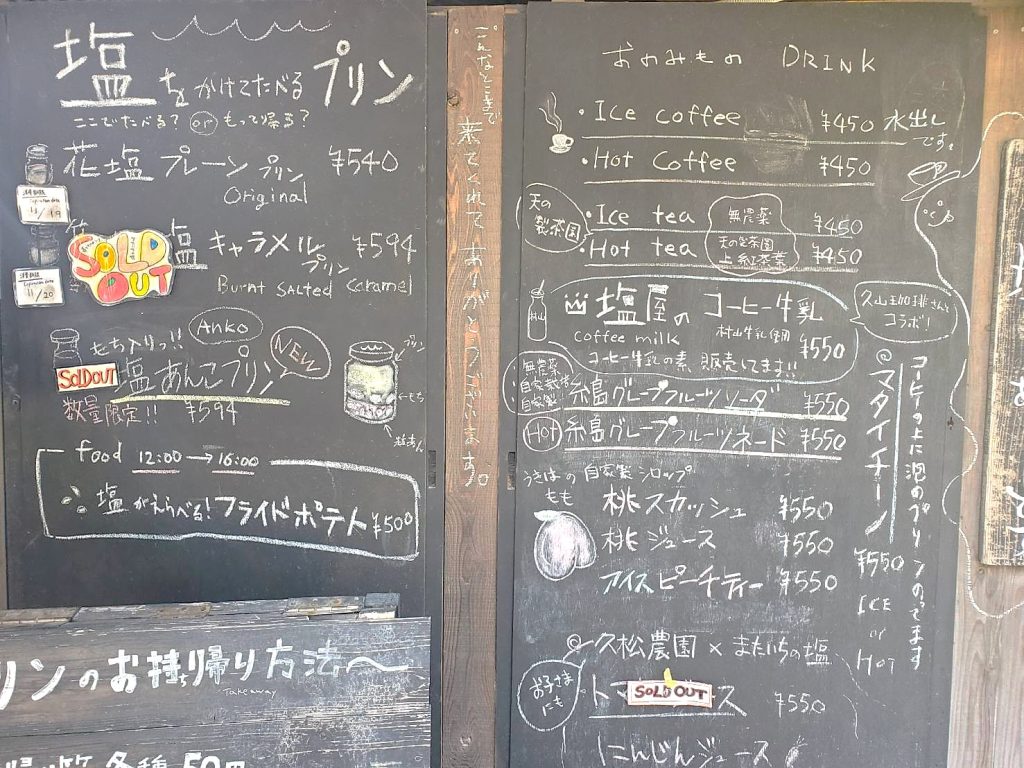 塩をかけてたべるプリン
ここでたべる? or もって帰る?
花塩プレーンプリン ¥540
Original
11/19
SOLD OUT
塩キャラメルプリン ¥594
Burnt SALTED caramel
11/20
Anko
もち入りっ!!
NEW
SOLDOUT
塩あんこプリン
数量限定!! ¥594
プリン
もち
food 12:00→16:00
塩がえらべる!フライドポテト ¥500
リンのお持ち帰り方法〜
Takeaway
各種 50円
こんなとこまで
来てくれてありがとうございます。
おのみもの DRINK
・Ice coffee ¥450 水出しです。
・Hot coffee ¥450
天の製茶園
・Ice tea ¥450
・Hot tea ¥450
無農薬
天の製茶園
上紅茶葉
村山
塩屋のコーヒー牛乳
coffee milk 村山牛乳使用 ¥550
コーヒー牛乳の素、販売してます!!
久山珈琲さんと
コラボ!
無農薬
自家栽培
自家製
糸島グレープフルーツソーダ ¥550
Hot 糸島グレープフルーツネード ¥550
うきはの自家製シロップ
もも
桃スカッシュ ¥550
桃ジュース ¥550
アイスピーチティー ¥550
マタイチーノ
コーヒーの上に泡のプリンのってます
¥550
ICE
or
HOT
久松農園×またいちの塩
お子さまにも
SOLD OUT
ス ¥550
にんじんジュース